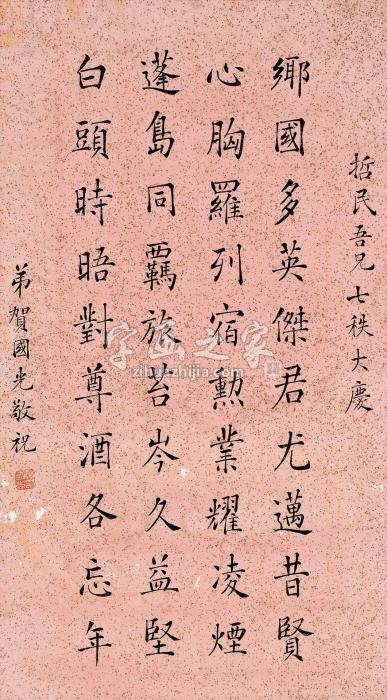 哲民吾兄七秩大慶
鄉國多英傑君尤邁昔賢
心胸羅列宿勳業耀凌煙
蓬島同羈旅苔岑久益堅
白頭時晤對尊酒各忘年
弟賀國光敬祝
字画之家
zihuazhijia.com